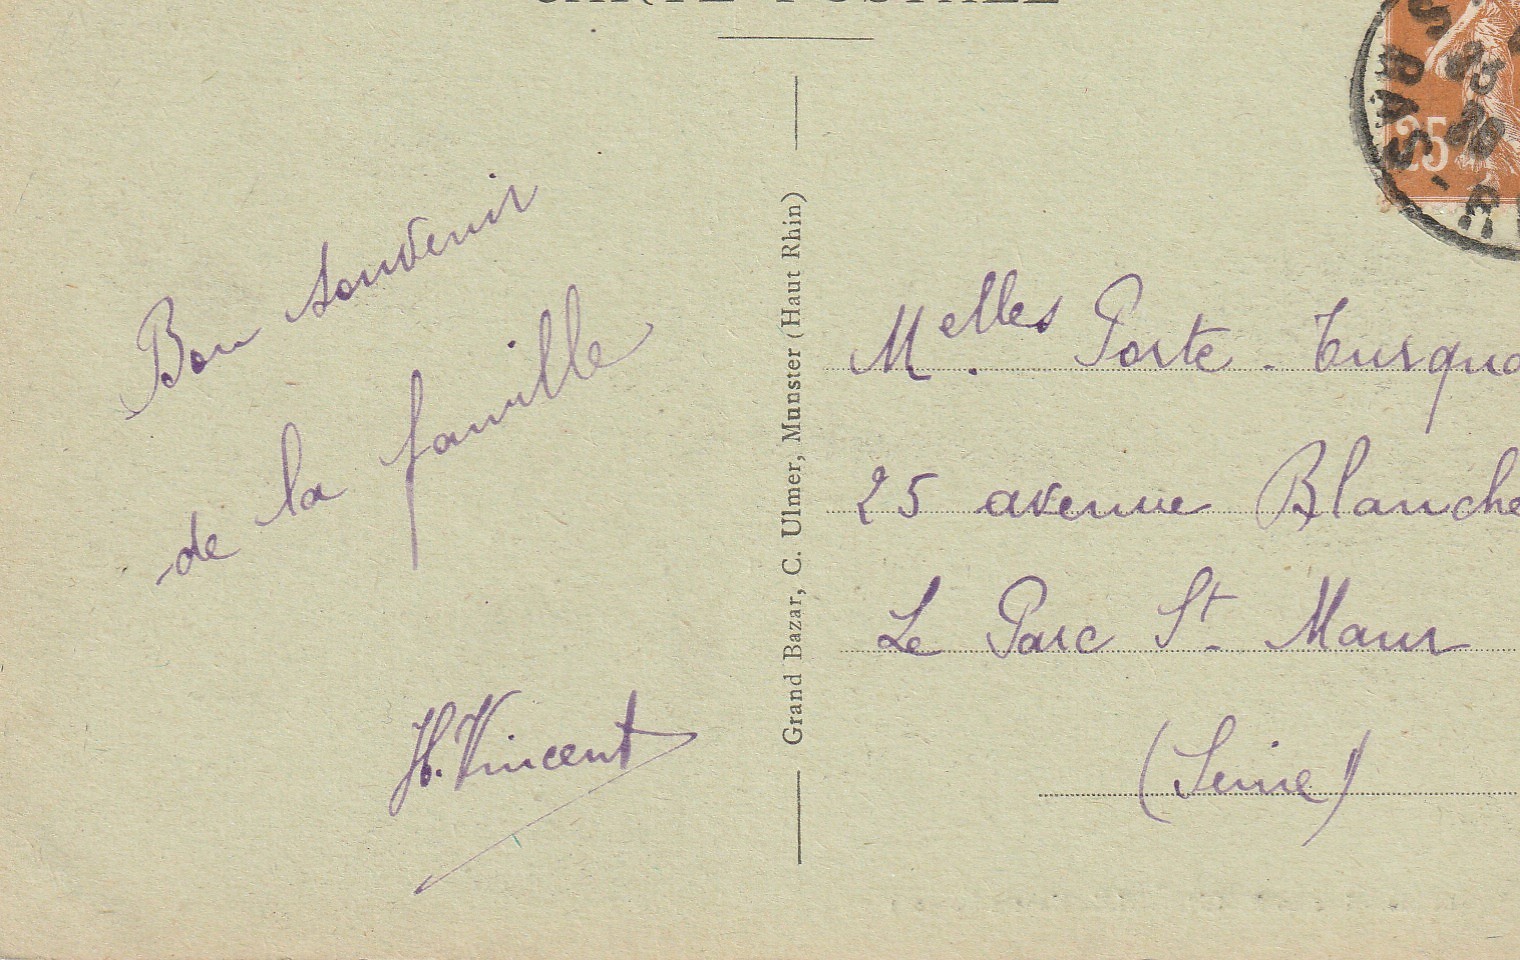 CARTE POSTALE
Bon souvenir
de la famille
H. Vincent
Grand Bazar, C. Ulmer, Munster (Haut Rhin)
25
BAS-R
Melles Porte-Turqu
25 avenue Blanche
Le Parc St. Maur
(Seine)